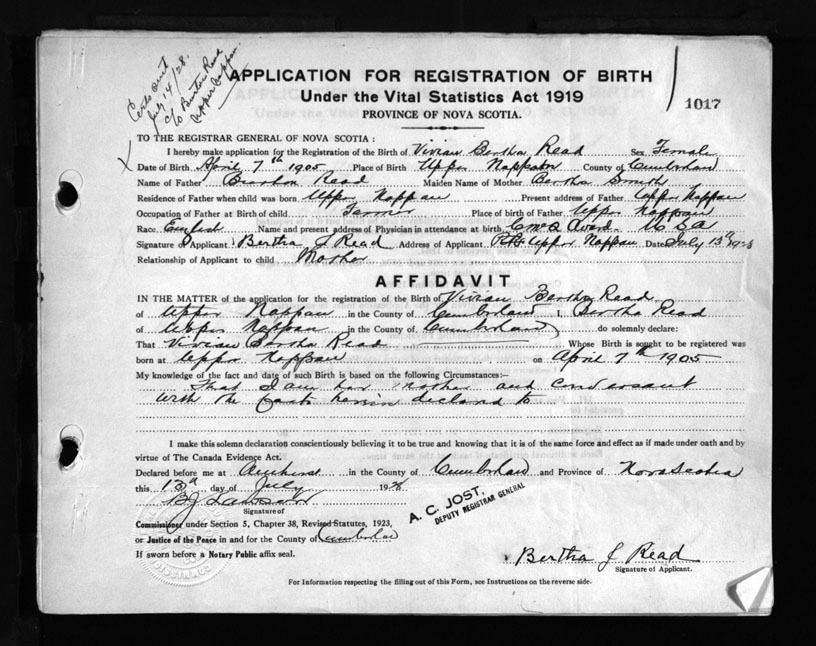 Certs sent
July 14/28.
c/o Burton Read
Upper Nappan.
APPLICATION FOR REGISTRATION OF BIRTH
Under the Vital Statistics Act 1919
PROVINCE OF NOVA SCOTIA.
1017
TO THE REGISTRAR GENERAL OF NOVA SCOTIA:
I hereby make application for the Registration of the Birth of Vivian Bertha Read Sex Female
Date of Birth April 7th 1905 Place of Birth Upper Nappan County of Cumberland
Name of Father Burton Read Maiden Name of Mother Bertha Smith
Residence of Father when child was born Upper Nappan Present address of Father Upper Nappan
Occupation of Father at Birth of child Farmer Place of birth of Father Upper Nappan
Race English Name and present address of Physician in attendance at birth U S A
Signature of Applicant Bertha J Read Address of Applicant Upper Nappan Date July 13th 1928
Relationship of Applicant to child Mother
AFFIDAVIT
IN THE MATTER of the application for the registration of the Birth of Vivian Bertha Read
of Upper Nappan in the County of Cumberland I, Bertha Read
of Upper Nappan in the County of Cumberland do solemnly declare:
That Vivian Bertha Read Whose Birth is sought to be registered was
born at Upper Nappan on April 7th 1905
My knowledge of the fact and date of such Birth is based on the following Circumstances:—
That I am her Mother and conversant
with the facts herein declared to
I make this solemn declaration conscientiously believing it to be true and knowing that it is of the same force and effect as if made under oath and by
virtue of The Canada Evidence Act.
Declared before me at Amherst in the County of Cumberland and Province of Nova Scotia
this 13th day of July 1928
Signature of
A. C. JOST,
DEPUTY REGISTRAR GENERAL
Commissioner under Section 5, Chapter 38, Revised Statutes, 1923,
or Justice of the Peace in and for the County of Cumberland
If sworn before a Notary Public affix seal.
Bertha J Read
Signature of Applicant.
For Information respecting the filling out of this Form, see Instructions on the reverse side.